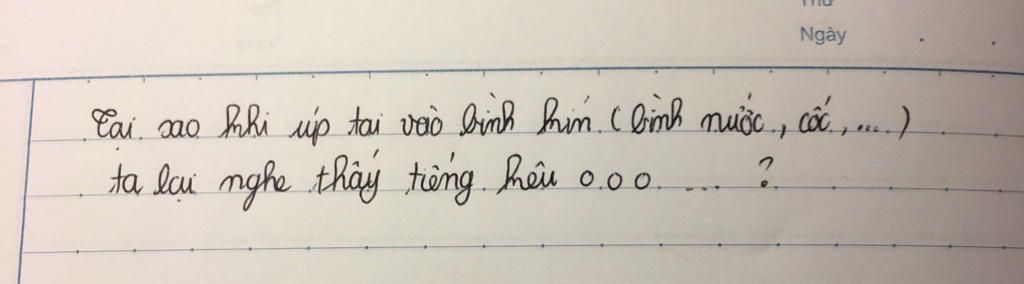 Thứ
Ngày
Tại sao khi úp tai vào bình kín (bình nước, cốc, ....)
ta lại nghe thấy tiếng kêu o.o.o .... ?